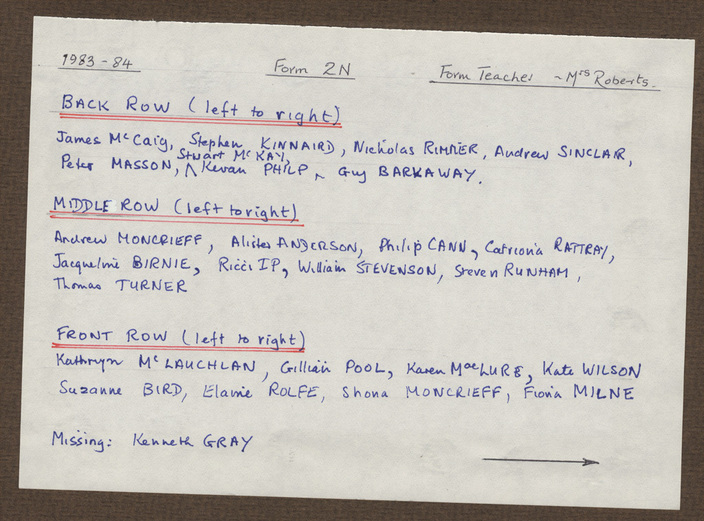 1983-84 Form 2N Form Teacher ~ Mrs Roberts.
BACK ROW (left to right)
James McCaig, Stephen KINNAIRD, Nicholas RIMMER, Andrew SINCLAIR,
Stuart McKAY,
Peter MASSON, ⋀ Kevan PHILP, Guy BARKAWAY.
MIDDLE ROW (left to right)
Andrew MONCRIEFF, Alister ANDERSON, Philip CANN, Catriona RATTRAY,
Jacqueline BIRNIE, Ricci IP, William STEVENSON, Steven RUNHAM,
Thomas TURNER
FRONT ROW (left to right)
Kathryn McLAUCHLAN, Gillian POOL, Karen MacLURE, Kate WILSON
Suzanne BIRD, Elaine ROLFE, Shona MONCRIEFF, Fiona MILNE
Missing: Kenneth GRAY